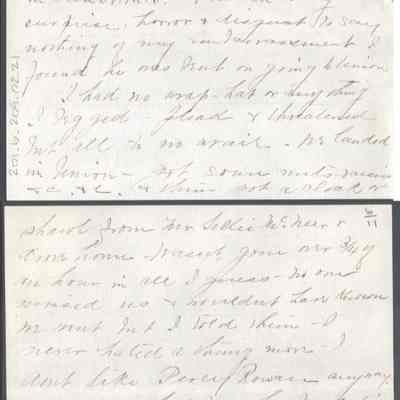 surprise, horror & disgust to say
nothing of my embarrassment I
found he was bent on going to Union
I had no wrap - hat or anything
I begged - plead & threatened
but all to no avail - We landed
in Union - got some nuts, raisins
&c. &c. & then got a cloak or
shawl from Mr Leslie McNeer &
drove home - Wasn't gone over 3/4 of
an hour in all I guess - no one
missed us & wouldn't have known
we went but I told them - I
never hated a thing more - I
dont like Percy Rowan anyway
6/11
2016.20